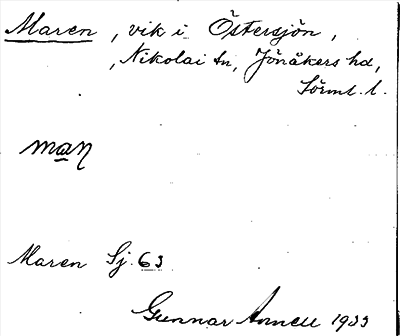 Maren, vik i Östersjön,
, Nikolai sn, Jönåkers hd,
Sörml. l.
Maren Sj. 63
Gunnar Annell 1933